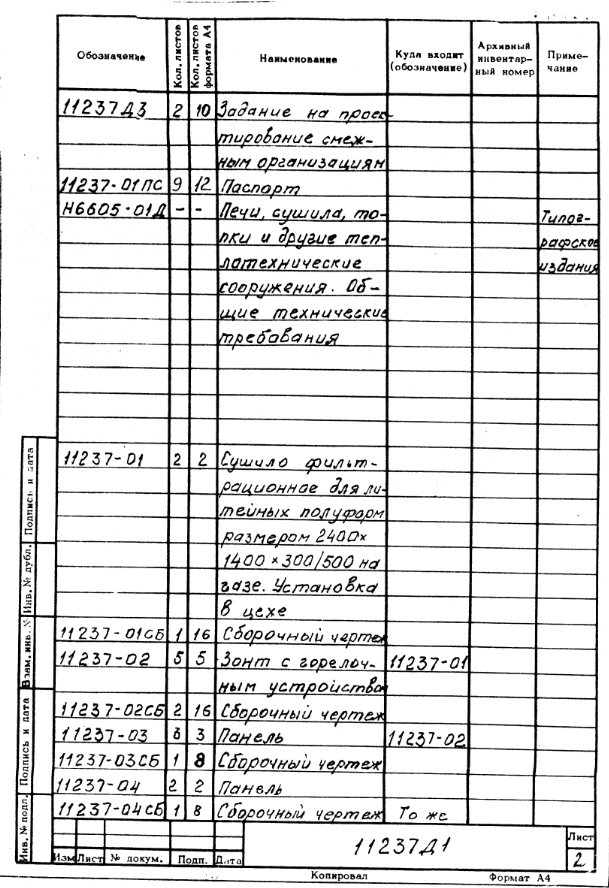 Обозначение Кол. листов Кол. листов формата А4 Наименование Куда входит (обозначение) Архивный инвентар-ный номер Приме-чание
11237Д3 2 10 Задание на проек-
тирование смеж-
ным организациям
11237-01ПС 9 12 Паспорт
Н6605-01Д - - Печи, сушила, то- Типог-
пки и другие теп- рафское
лотехнические издания
сооружения. Об-
щие технические
требования
11237-01 2 2 Сушило фильт-
рационное для ли-
тейных полуформ
размером 2400×
1400×300/500 на
газе. Установка
в цехе
11237-01СБ 1 16 Сборочный чертеж
11237-02 5 5 Зонт с горелоч- 11237-01
ным устройством
11237-02СБ 2 16 Сборочный чертеж
11237-03 3 3 Панель 11237-02
11237-03СБ 1 8 Сборочный чертеж
11237-04 2 2 Панель
11237-04СБ 1 8 Сборочный чертеж То же
Инв. № подл. Подпись и дата Взам. инв. № Инв. № дубл. Подпись и дата
11237Д1 Лист
2
Изм Лист № докум. Подп. Дата
Копировал Формат А4